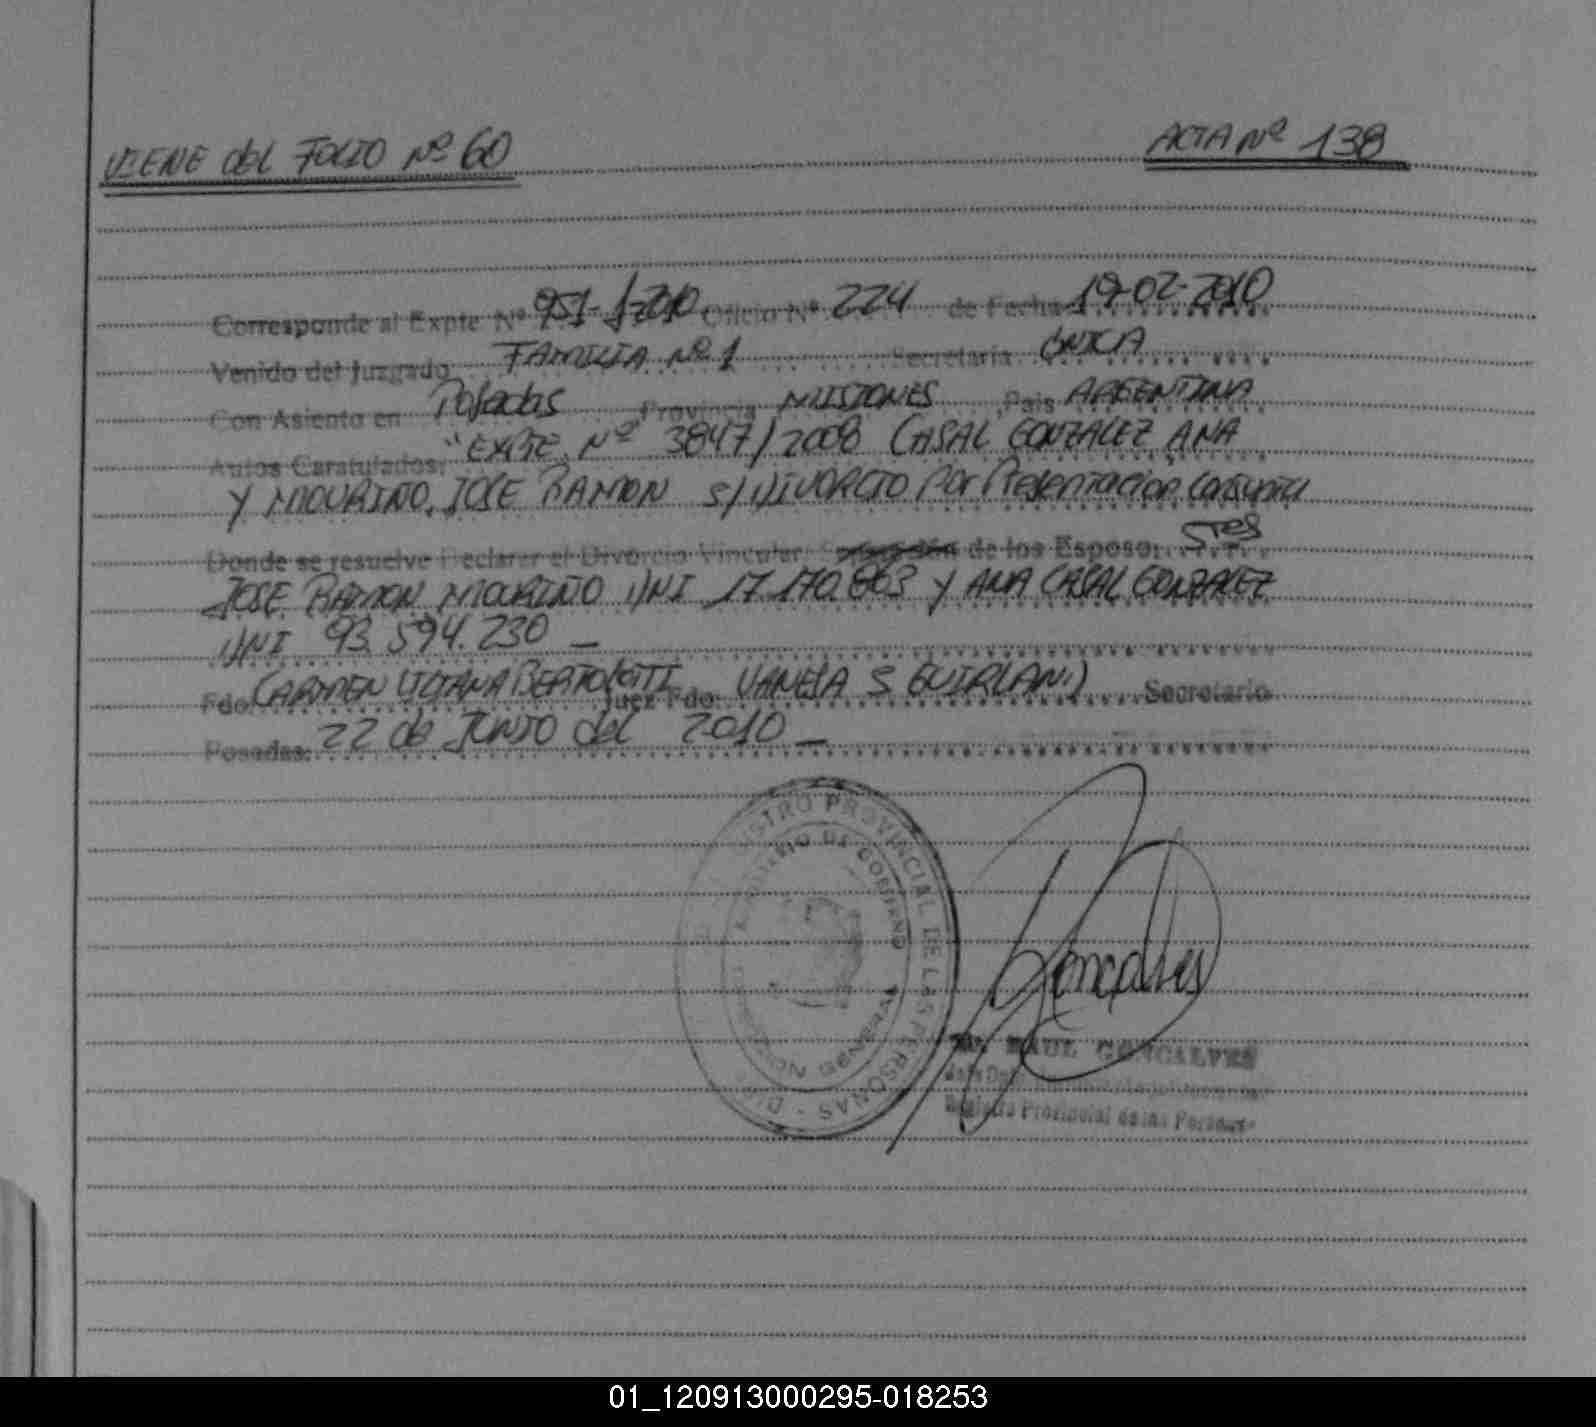 VIENE del FOLIO Nº 60
ACTA Nº 138
Corresponde al Expte Nº 951-J-2010 Oficio Nº 224 de Fecha 19-02-2010
Venido del Juzgado FAMILIA Nº 1 Secretaría UNICA
Con Asiento en Posadas Provincia MISIONES País ARGENTINA
Autos Caratulados: "EXPTE Nº 3847/2008 CASAL GONZALEZ ANA
Y MOURIÑO, JOSE RAMON S/ DIVORCIO POR Presentacion Conjunta
Donde se resuelve Declarar el Divorcio Vincular Separación de los Esposo: STES
JOSE RAMON MOURIÑO DNI 17.170.863 Y ANA CASAL GONZALEZ
DNI 93.594.230 —
Fdo: CARMEN LILIANA BERTOLOTTI Juez Fdo: VANESA S GUIRLAN Secretario
Posadas: 22 de JUNIO del 2010 —
REGISTRO PROVINCIAL DE LAS PERSONAS
MINISTERIO DE GOBIERNO
Goncalves
RAUL GONCALVES
Registro Provincial de las Personas
01_120913000295-018253